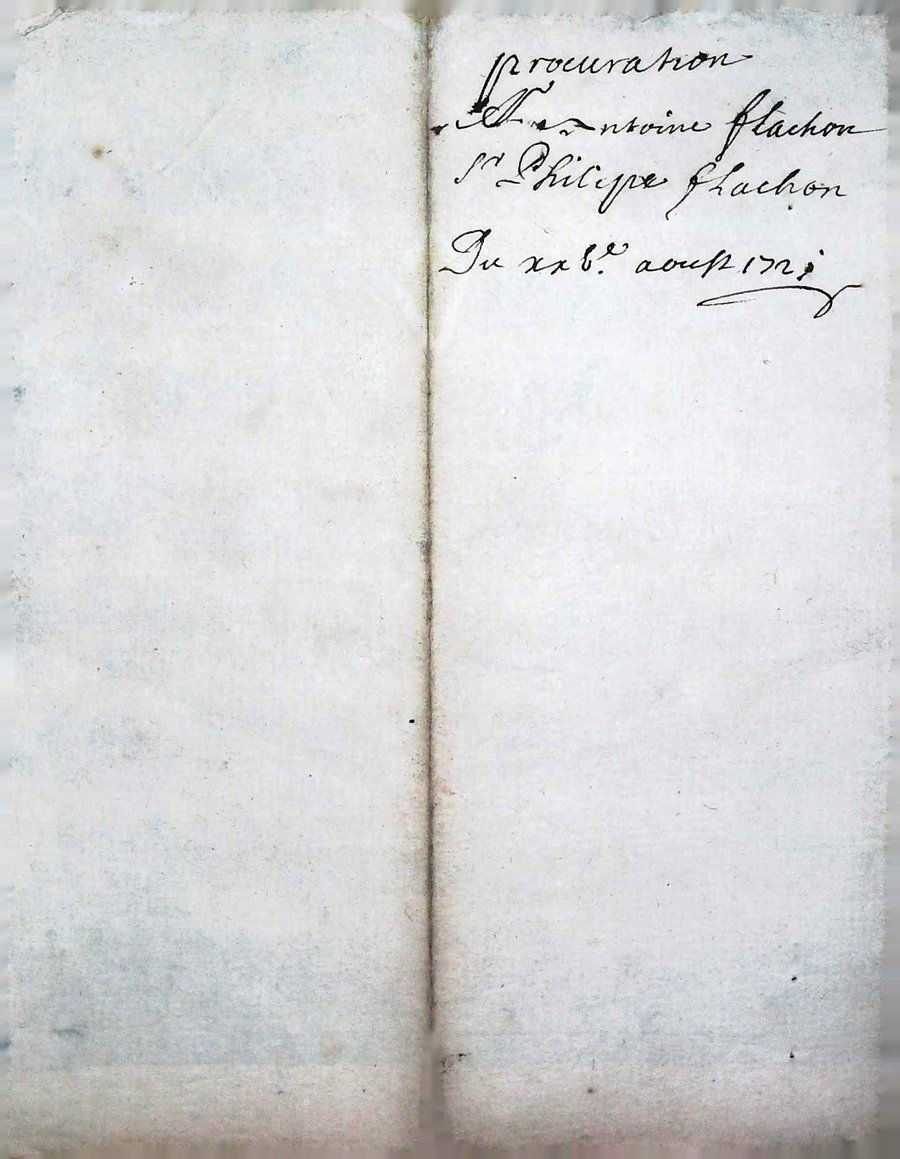 procuration
Antoine flachon
Sr Philipe flachon
Du xxbe. aoust 1721